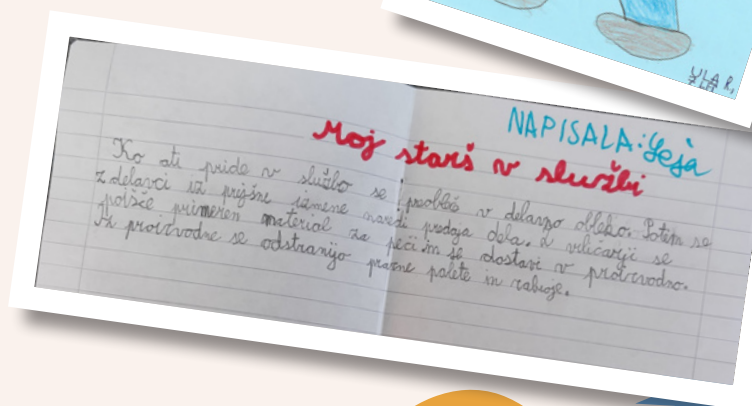 ULA R.
NAPISALA: Leja
Moj starš v službi
Ko ati pride v službo se preobleč v delavzo obleko. Potem se
z delavci iz prejšne izmene naredi predaja dela. Z viličarji se
poišče primeren material za peči in se dostavi v proizvodno.
Iz proizvodne se odstranijo prazne palete in zaboje.